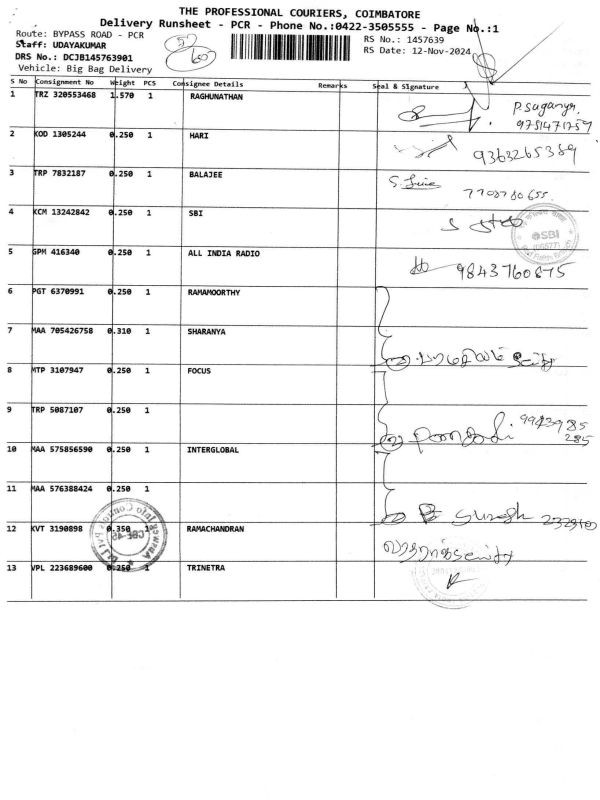 THE PROFESSIONAL COURIERS, COIMBATORE
Delivery Runsheet - PCR - Phone No.:0422-3505555 - Page No.:1
Route: BYPASS ROAD - PCR
RS No.: 1457639
Staff: UDAYAKUMAR
RS Date: 12-Nov-2024
DRS No.: DCJB145763901
Vehicle: Big Bag Delivery
60
S No Consignment No Weight PCS Consignee Details Remarks Seal & Signature
1 TRZ 320553468 1.570 1 RAGHUNATHAN P. Suganya
9751471759
2 KOD 1305244 0.250 1 HARI 9363265389
3 TRP 7832187 0.250 1 BALAJEE 7708780655
4 KCM 13242842 0.250 1 SBI SBI
5 GPM 416340 0.250 1 ALL INDIA RADIO 9843760875
6 PGT 6370991 0.250 1 RAMAMOORTHY
7 MAA 705426758 0.310 1 SHARANYA
8 MTP 3107947 0.250 1 FOCUS
9 TRP 5087107 0.250 1
10 MAA 575856590 0.250 1 INTERGLOBAL
11 MAA 576388424 0.250 1 Suresh
12 KVT 3190898 0.350 1 RAMACHANDRAN
13 VPL 223689600 0.250 1 TRINETRA